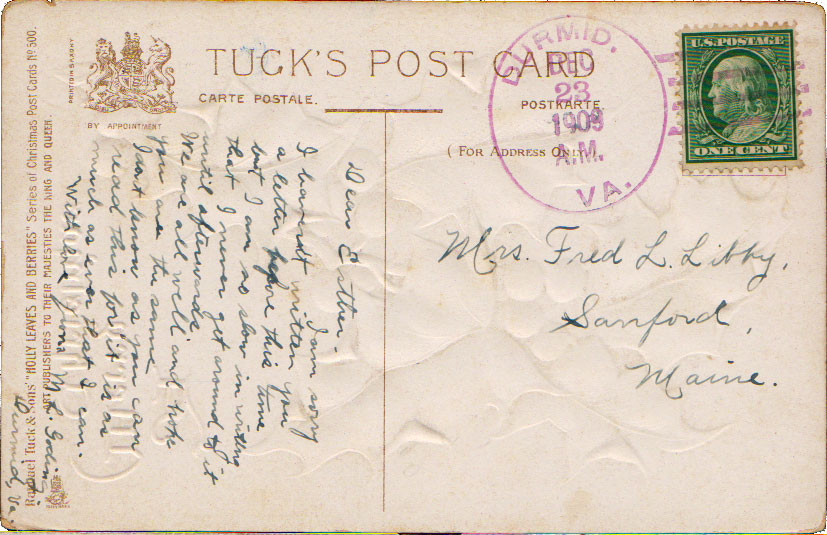 TUCK'S POST CARD
CARTE POSTALE.
POSTKARTE.
BY APPOINTMENT
PRINTED IN SAXONY
( FOR ADDRESS ONLY. )
DURMID.
DEC
23
1909
A.M.
VA.
U.S. POSTAGE
ONE CENT
Mrs. Fred L. Libby,
Sanford,
Maine.
Dear Esther-
I am sory
I havendt written you
a letter before this time
but I am so slow in writing
that I never get around to it
until afterwards
We are all well and hope
you are the same
I dont know as you can
read this for it is as
much as ever that I can.
With love from M. L.
Durmid, Va.
Raphael Tuck & Sons' "HOLLY LEAVES AND BERRIES" Series of Christmas Post Cards No 500.
ART PUBLISHERS TO THEIR MAJESTIES THE KING AND QUEEN.